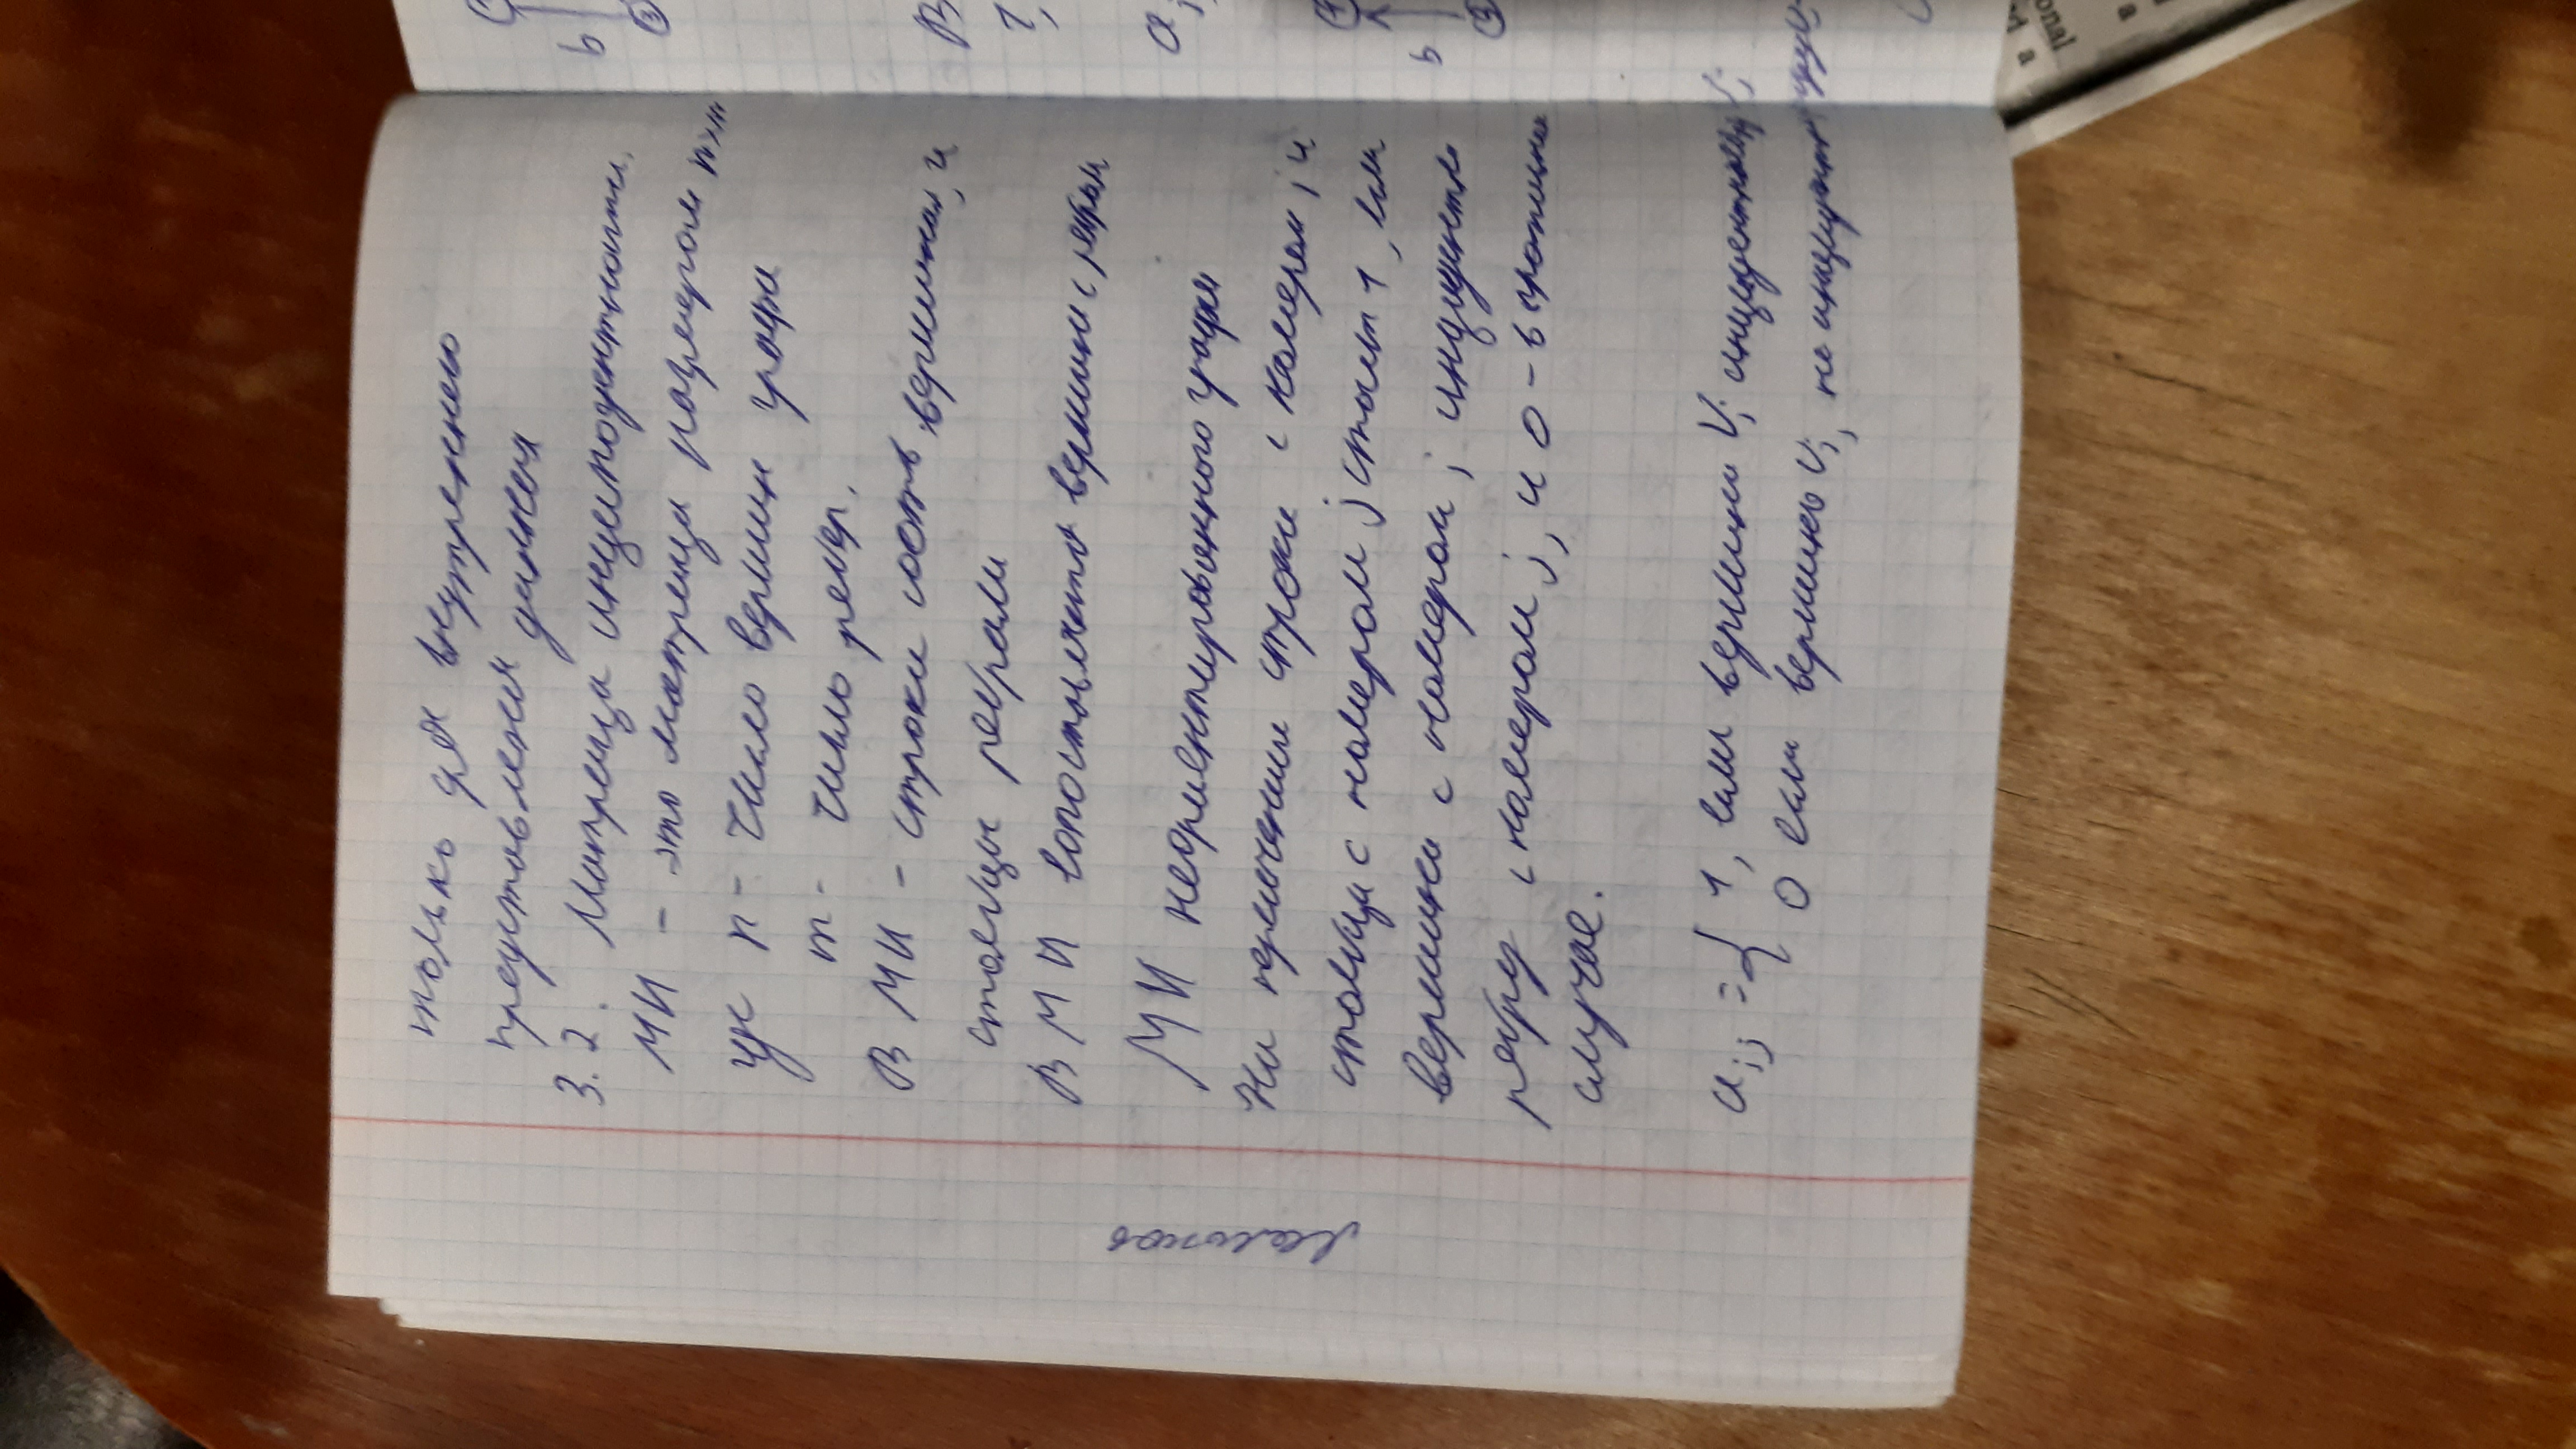 только для внутреннего
представления данных
3.2. Матрица инциподентности.
МИ - это матрица размером n×m
где n - число вершин графа
m - число ребер.
В МИ - строки соотв вершинам, и
столбцы ребрами
В МИ сопоставляются вершины с ребрам
МИ неориентированного графа
На пересечении строки с номером i и
столбца с номером j стоит 1, если
вершина с номером i инцидентна
ребру с номером j, и 0 - в противном
случае.
a i j = { 1, если вершина Vi инцидентна
0 если вершина Vi, не инцидентна
b
3
В
1,
a
b
3